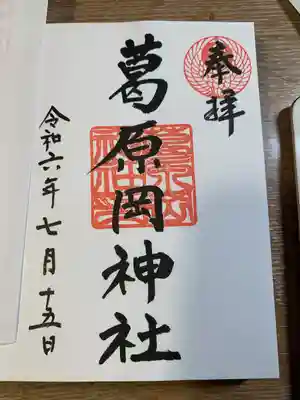 奉拝
葛原岡神社
令和六年七月十五日